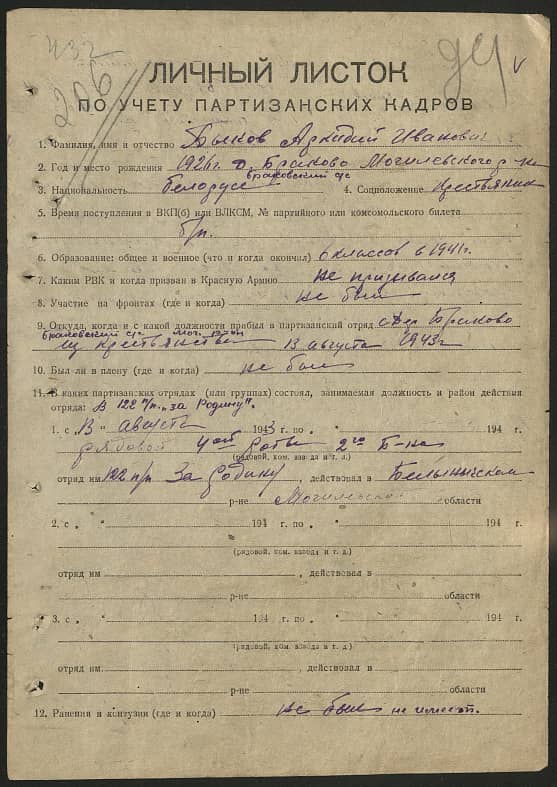 432
206
ЛИЧНЫЙ ЛИСТОК
ПО УЧЕТУ ПАРТИЗАНСКИХ КАДРОВ
1. Фамилия, имя и отчество Быков Аркадий Иванович
2. Год и место рождения 1926г. д. Браково Могилевского р-на
Браковский с/с
3. Национальность белорус 4. Соцположение Крестьянин
5. Время поступления в ВКП(б) или ВЛКСМ, № партийного или комсомольского билета
б/п.
6. Образование: общее и военное (что и когда окончил) 6 классов в 1941г.
7. Каким РВК и когда призван в Красную Армию не призывался
8. Участие на фронтах (где и когда) не был
9. Откуда, когда и с какой должности прибыл в партизанский отряд с дер Браково
Браковский с/с Мог. р-на
из крестьянства 13 августа 1943г.
10. Был-ли в плену (где и когда) не был
11. В каких партизанских отрядах (или группах) состоял, занимаемая должность и район действия
отряда: В 122 п/п. „за Родину".
1. с „13" августа 1943 г. по „ " 194 г.
рядовой 4ой роты 2го Б-на
(рядовой, ком. взвода и т. д.)
отряд им 122 п/п За Родину, действовал в Белыничском
р-не Могилевской области
2. с „ " 194 г. по „ " 194 г.
(рядовой, ком. взвода и т. д.)
отряд им , действовал в
р-не области
3. с „ " 194 г. по „ " 194 г.
(рядовой, ком. взвода и т. д.)
отряд им , действовал в
р-не области
12. Ранения и контузии (где и когда) не был не имеет.